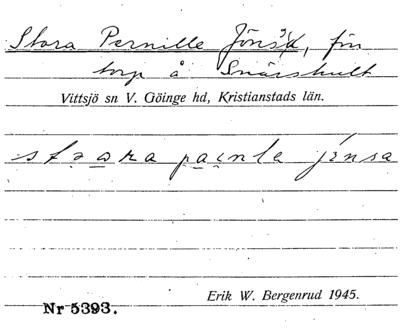 Stora Pernille Jöns, för
torp å Snärshult
Vittsjö sn V. Göinge hd, Kristianstads län.
stɔara paɛnle jɛnsa
Erik W. Bergenrud 1945.
Nr 5393.